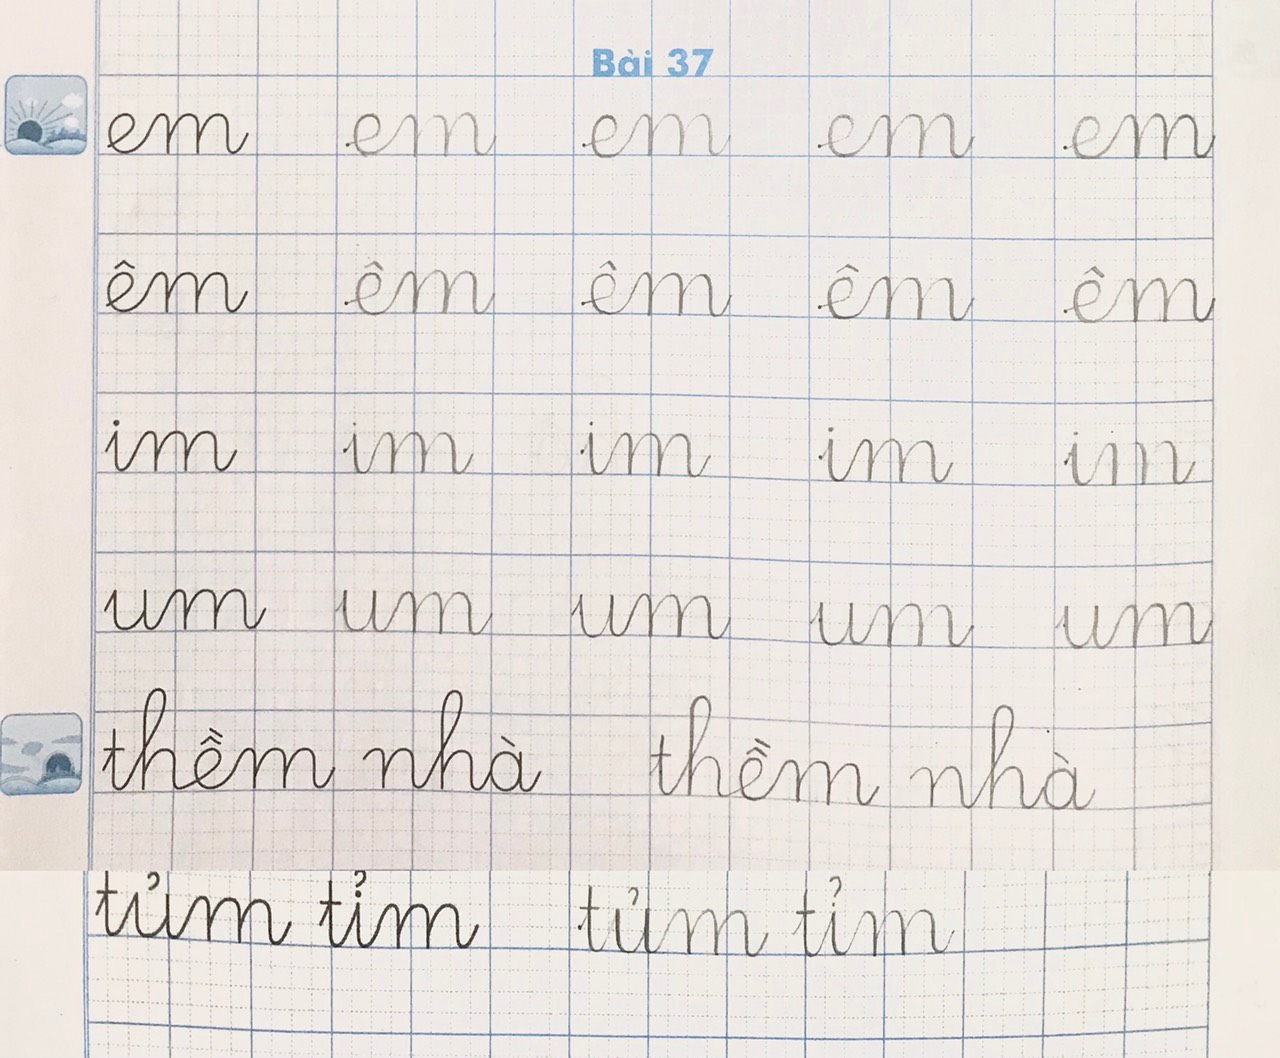 Bài 37
em em em em em
êm êm êm êm êm
im im im im im
um um um um um
thềm nhà thềm nhà
tủm tỉm tủm tỉm